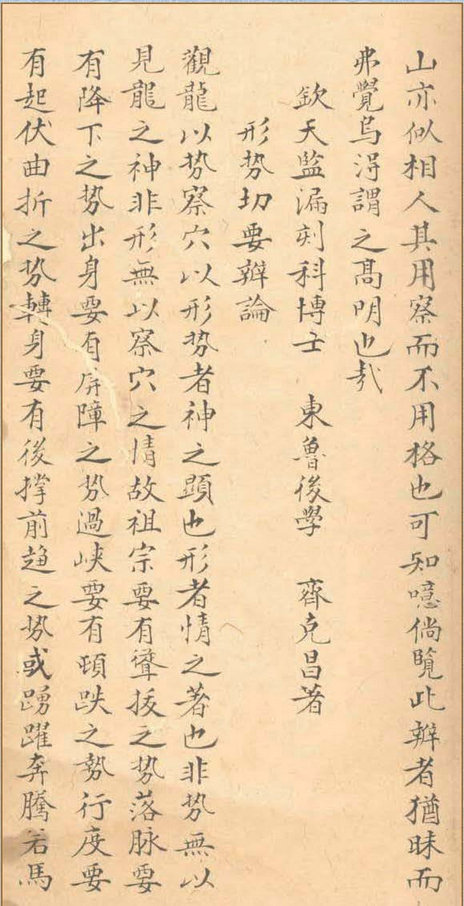 山亦似相人其用察而不用格也可知噫倘覽此辯者猶昧而
弗覺烏得謂之髙明也㢤
欽天監漏刻科博士　東魯後學　齊克昌著
形势切要辯論
觀龍以势察穴以形势者神之顕也形者情之著也非势無以
見龍之神非形無以察穴之情故祖宗要有聳拔之势落脉要
有降下之势出身要有屏障之势過峡要有頓跌之勢行度要
有起伏曲折之势轉身要有後撑前趋之势或踴躍奔騰若馬